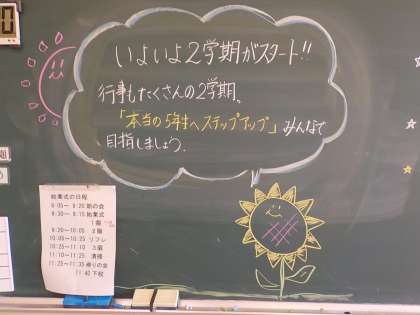 いよいよ2学期がスタート!!
行事もたくさんの2学期。
「本当の5年生へステップアップ」みんなで
目指しましょう.
始業式の日程
8:05〜 8:20 朝の会
8:30〜 9:15 始業式
1個
9:20〜10:05 2個
10:05〜10:25 リフレ
10:25〜11:10 3個
11:10〜11:25 清掃
11:25〜11:35 帰りの会
11:40 下校